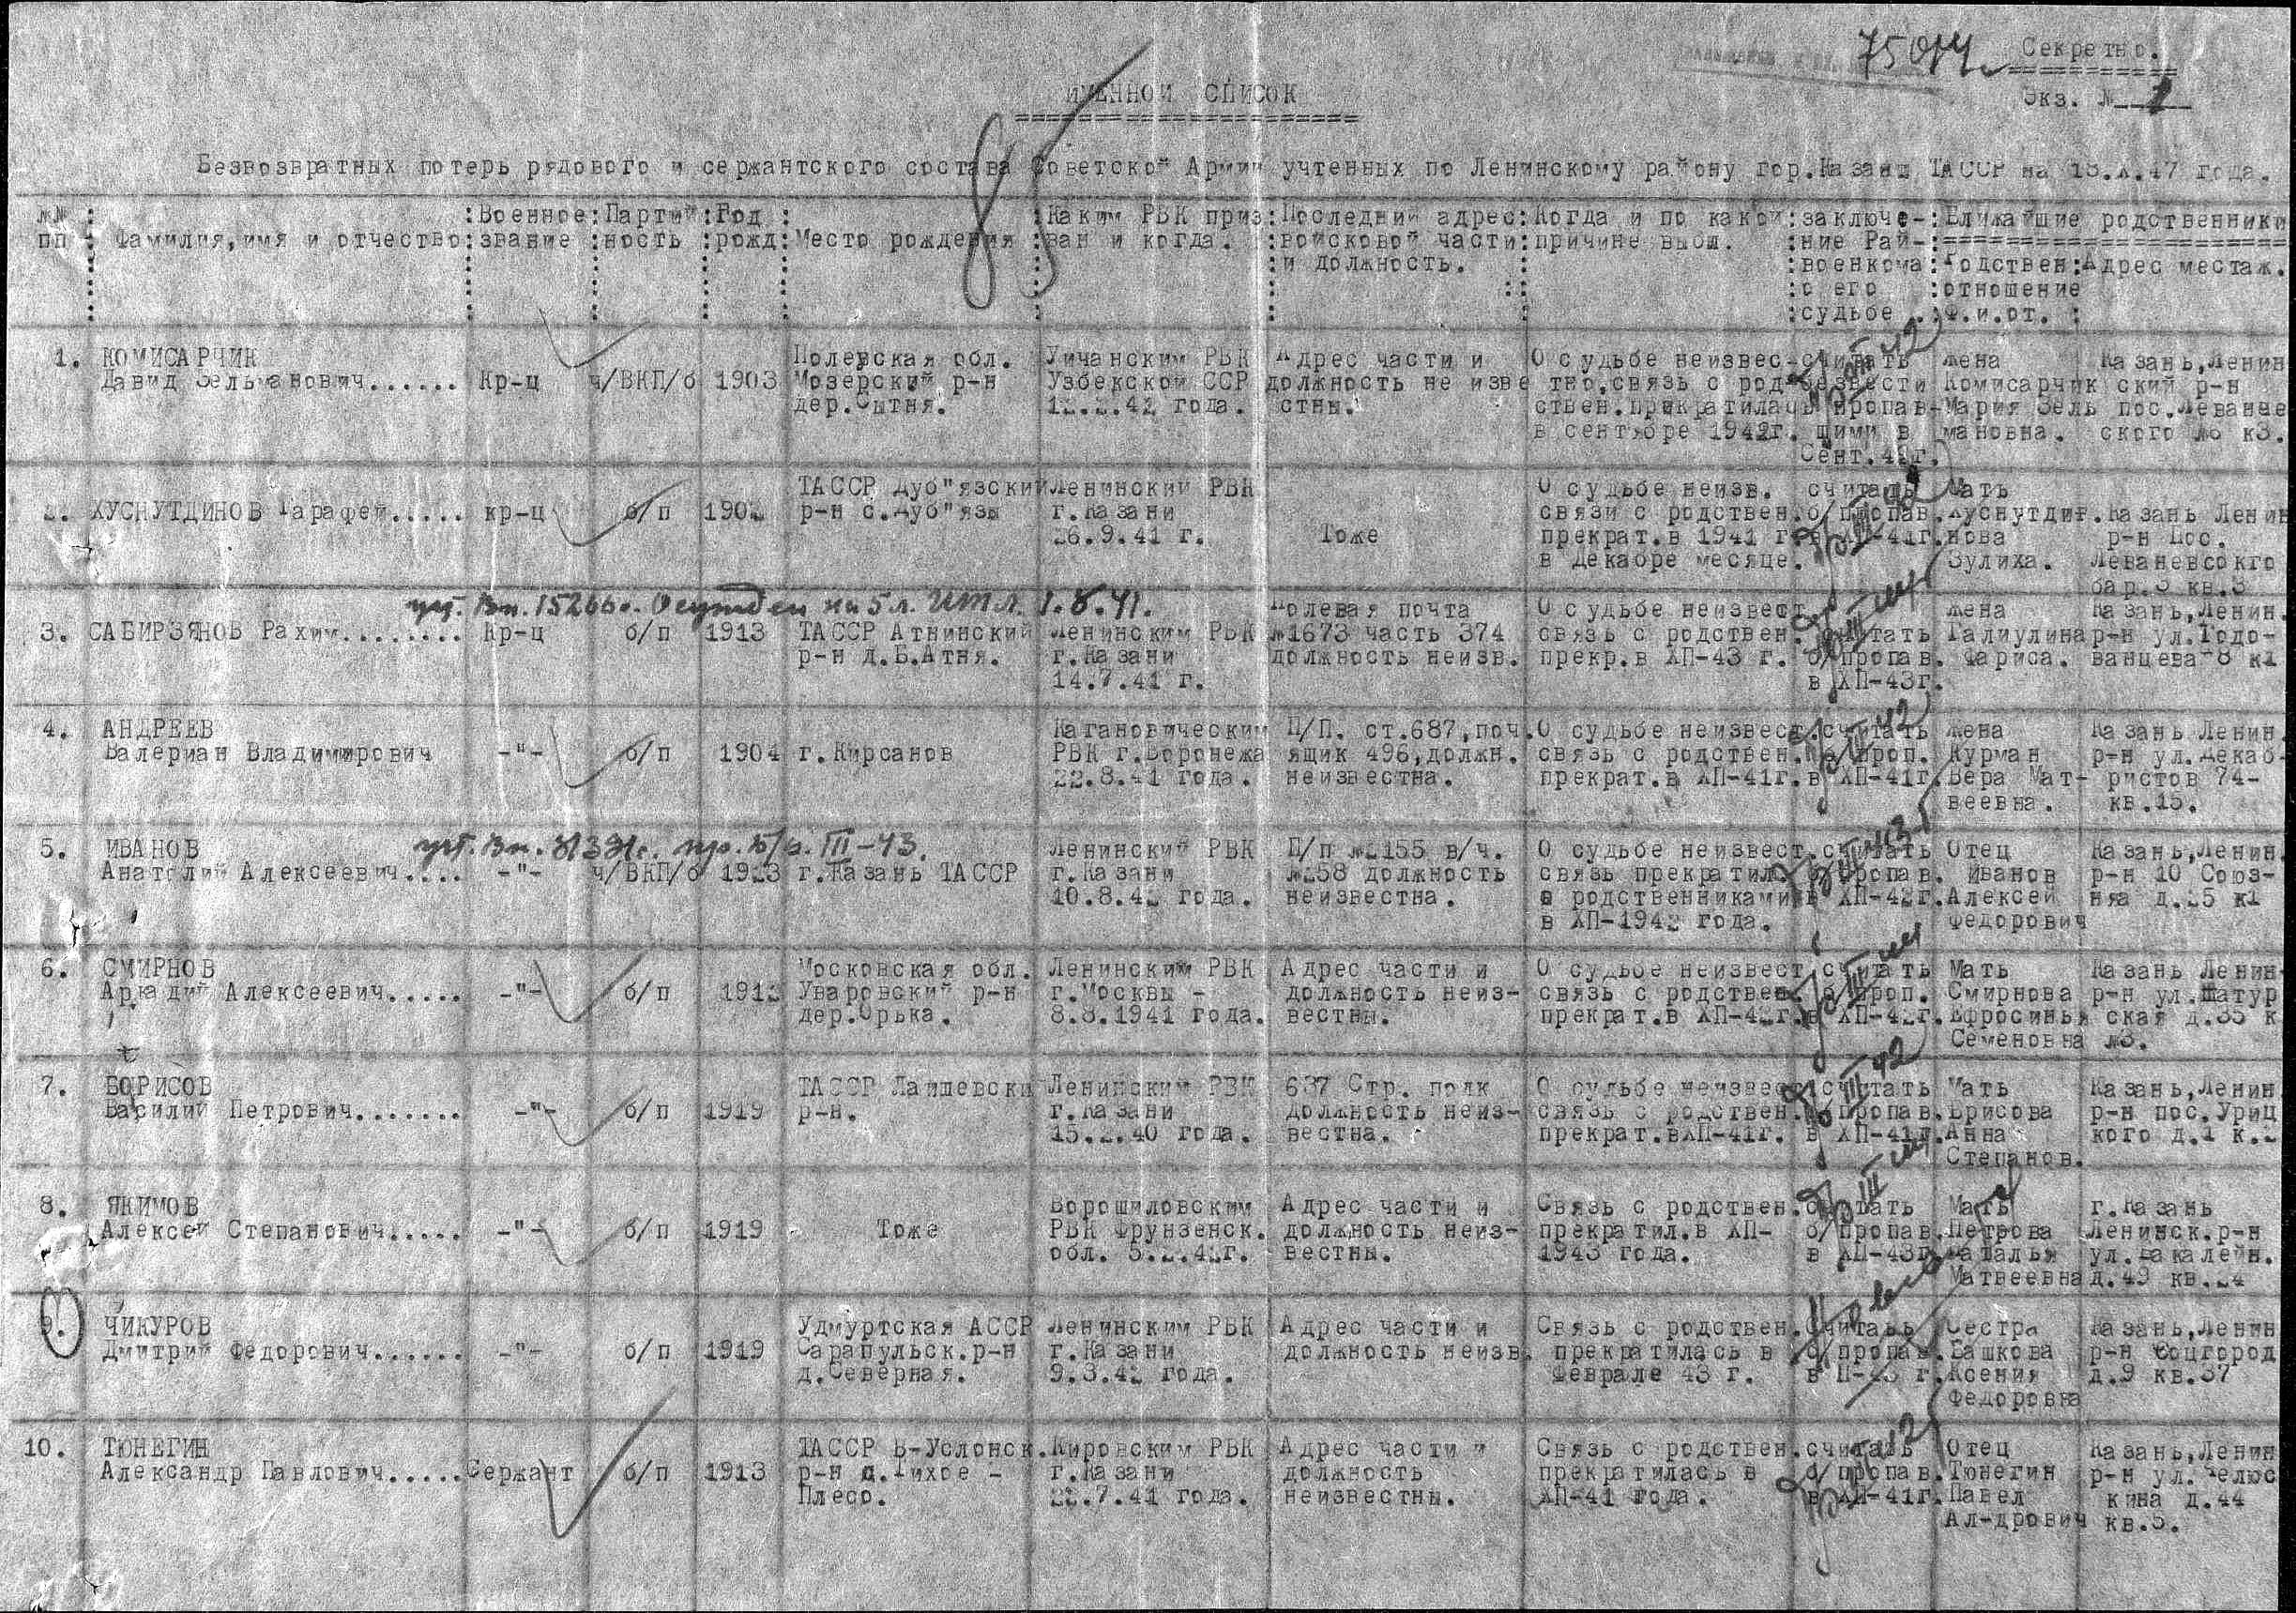 75014
Секретно.
Экз. № 1
ИМЕННОЙ СПИСОК
85
Безвозвратных потерь рядового и сержантского состава Советской Армии учтенных по Ленинскому району гор.Казани ТАССР на 15.X.47 года.
№№ пп
Фамилия,имя и отчество
Военное звание
Партий ность
Год рожд
Место рождения
Каким РВК приз ван и когда.
Последний адрес войсковой части и должность.
Когда и по какой причине выбыл.
заключе- ние Рай- военкома о его судьбе.
Ближайшие родственники
Родствен отношение Ф.и.от.
Адрес местаж.
1. КОМИСАРЧИК
Давид Зельманович......
Кр-ц
ч/ВКП/б
1903
Полевская обл.
Мозерский р-н
дер.Сытня.
Уичанским РВК
Узбекской ССР
года.
Адрес части и
должность не изве
стны.
О судьбе неизвес-
тно,связь с род-
ствен.прикратилась
в сентябре 1942г.
считать
безвести
пропав-
щими в
Сент.42г.
жена
Комисарчик
Мария Зель
мановна.
Казань,Ленин
ский р-н
пос.Леванев
ского №6 к3.
2. ХУСНУТДИНОВ Гарафей.....
кр-ц
б/п
ТАССР Дуб"язский
р-н с.Дуб"язы
Ленинский РВК
г.Казани
26.9.41 г.
Тоже
О судьбе неизв.
связи с родствен.
прекрат.в 1941 г.
в Декабре месяце.
считать
б/пропав.
в XП-41г.
Мать
Хуснутдин.
нова
Зулиха.
Казань Ленин
р-н Пос.
Леваневсокго
бар.3 кв.3
уч. Вп. 15266с. Осужден на 5 л. ИТЛ. 1.8.41.
3. САБИРЗЯНОВ Рахим........
Кр-ц
б/п
1913
ТАССР Атнинский
р-н д.Б.Атня.
Ленинским РВК
г.Казани
14.7.41 г.
Полевая почта
№1673 часть 374
должность неизв.
О судьбе неизвест
связь с родствен.
прекр.в XП-43 г.
считать
б/пропав.
в XП-43г.
жена
Галиулина
Фариса.
Казань,Ленин.
р-н ул.Годо-
ванцева 8 к1
4. АНДРЕЕВ
Валериан Владимирович
-"-
б/п
1904
г.Кирсанов
Кагановическим
РВК г.Воронежа
22.8.41 года.
П/П. ст.687,поч.
ящик 496,должн.
неизвестна.
О судьбе неизвест.
связь с родствен.
прекрат.в XП-41г.
считать
б/проп.
в XП-41г.
жена
Курман
Вера Мат-
веевна.
Казань Ленин.
р-н ул.Декаб-
ристов 74-
кв.15.
уч. Вп. 81391с. пр. б/в. III-43.
5. ИВАНОВ
Анатолий Алексеевич....
-"-
ч/ВКП/б
1923
г.Казань ТАССР
Ленинский РВК
г.Казани
10.8.42 года.
П/п №2155 в/ч.
№258 должность
неизвестна.
О судьбе неизвест.
связь прекратил.
с родственниками
в XП-1942 года.
считать
б/пропав.
в XП-42г.
Отец
Иванов
Алексей
Федорович
Казань,Ленин.
р-н 10 Союз-
няа д.25 к1
6. СМИРНОВ
Аркадий Алексеевич.....
-"-
б/п
Московская обл.
Уваровский р-н
дер.Орька.
Ленинским РВК
г.Москвы -
8.8.1941 года.
Адрес части и
должность неиз-
вестны.
О судьбе неизвест
связь с родствен.
прекрат.в XП-42г.
считать
б/проп.
в XП-42г.
Мать
Смирнова
Ефросинья
Семеновна
Казань Ленин
р-н ул.Шатур
ская д.35 к
№3.
7. БОРИСОВ
Василий Петрович.......
-"-
б/п
1919
ТАССР Лаишевски
р-н.
Ленинским РВК
г.Казани
15.2.40 года.
637 Стр. полк
должность неиз-
вестна.
О судьбе неизвест
связь с родствен.
прекрат.вXП-41г.
считать
б/пропав.
в XП-41г.
Мать
Брисова
Анна
Степанов.
Казань,Ленин
р-н пос.Уриц
кого д.1 к.2
8. ЯКИМОВ
Алексей Степанович.....
-"-
б/п
1919
Тоже
Ворошиловским
РВК Фрунзенск.
обл. 5.2.42г.
Адрес части и
должность неиз-
вестны.
Связь с родствен.
прекратил.в XП-
1943 года.
считать
б/пропав.
в XП-43г.
Мать
Петрова
Наталья
Матвеевна
г.Казань
Ленинск.р-н
ул.Бакалейн.
д.49 кв.24
9. ЧИКУРОВ
Дмитрий Федорович......
-"-
б/п
1919
Удмуртская АССР
Сарапульск.р-н
д.Северная.
Ленинским РВК
г.Казани
9.3.42 года.
Адрес части и
должность неизв.
Связь с родствен.
прекратилась в
Феврале 43 г.
Считаьь
б/пропав.
в П-43 г.
Сестра
Башкова
Ксения
Федоровна
Казань,Ленин
р-н Соцгород
д.9 кв.37
10. ТЮНЕГИН
Александр Павлович.....
Сержант
б/п
1913
ТАССР В-Услонск.
р-н д.Тихое -
Плесо.
Кировским РВК
г.Казани
22.7.41 года.
Адрес части и
должность
неизвестны.
Связь с родствен.
прекратилась в
XП-41 года.
считать
б/пропав.
в XП-41г.
Отец
Тюнегин
Павел
Ал-дрович
Казань,Ленин
р-н ул.Челюс
кина д.44
кв.5.